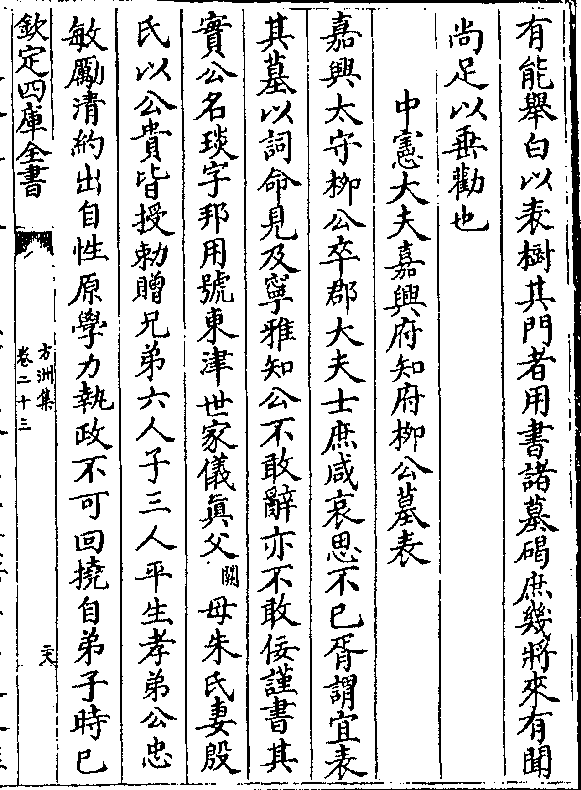 有能舉白以表樹其門者用書諸墓碣庶幾將來有聞
尚足以垂勸也
中憲大夫嘉興府知府柳公墓表
嘉興太守柳公卒郡大夫士庶咸哀思不已胥謂宜表
其墓以詞命見及寧雅知公不敢辭亦不敢佞謹書其
實公名琰字邦用號東津世家儀真父闕母朱氏妻殷
氏以公貴皆授勅贈兄弟六人子三人平生孝弟公忠
敏勵清約出自性原學力執政不可回撓自弟子時已
欽定四庫全書
方洲集
卷二十三